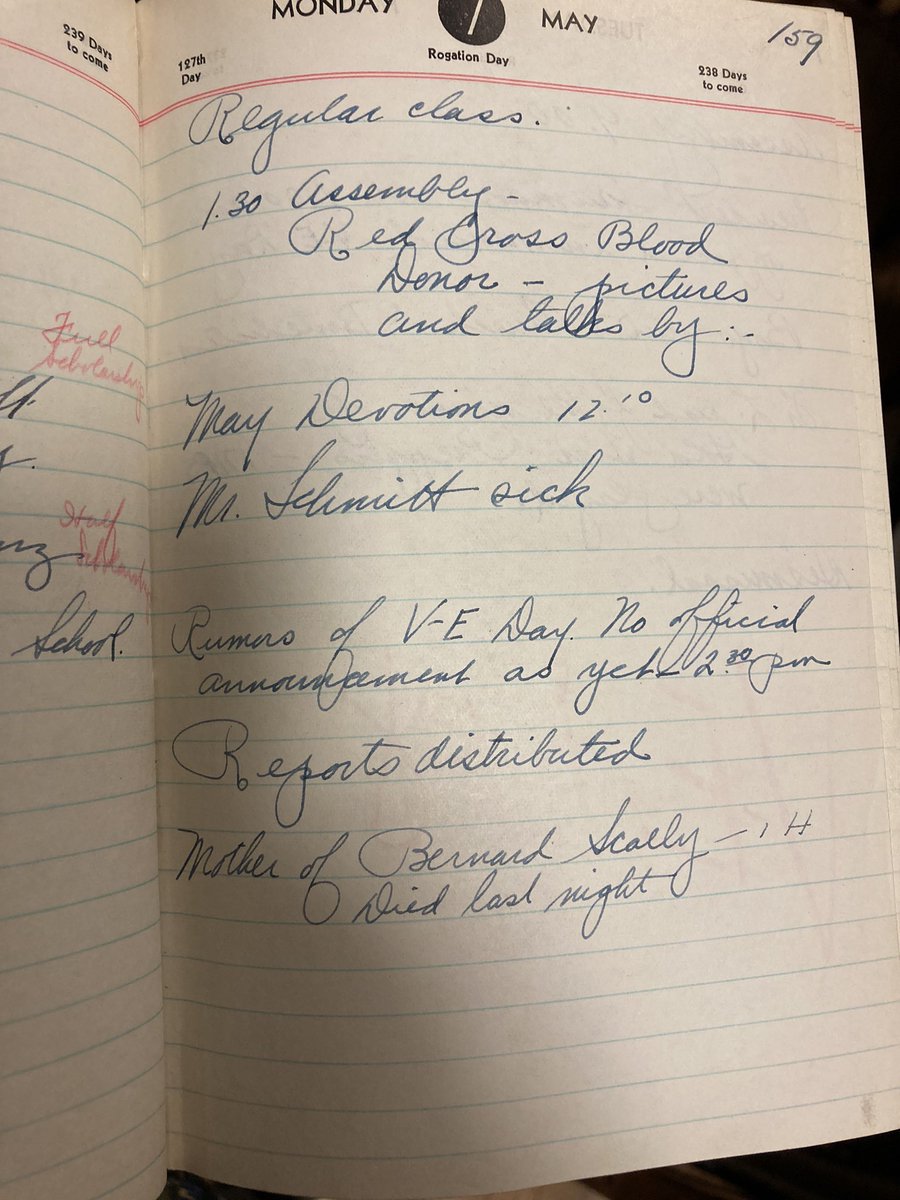 239 Days
to come
Full
Scholarship
Half
Scholarship
School.
MONDAY 7 MAY
159
127th
Day
Rogation Day
238 Days
to come
Regular class.
1.30 Assembly -
Red Cross Blood
Donor - pictures
and talks by:-
May Devotions 12.10
Mr. Schmitt sick
Rumors of V-E Day. No official
announcement as yet - 2:30 pm
Reports distributed
Mother of Bernard Scally - 1 H
Died last night